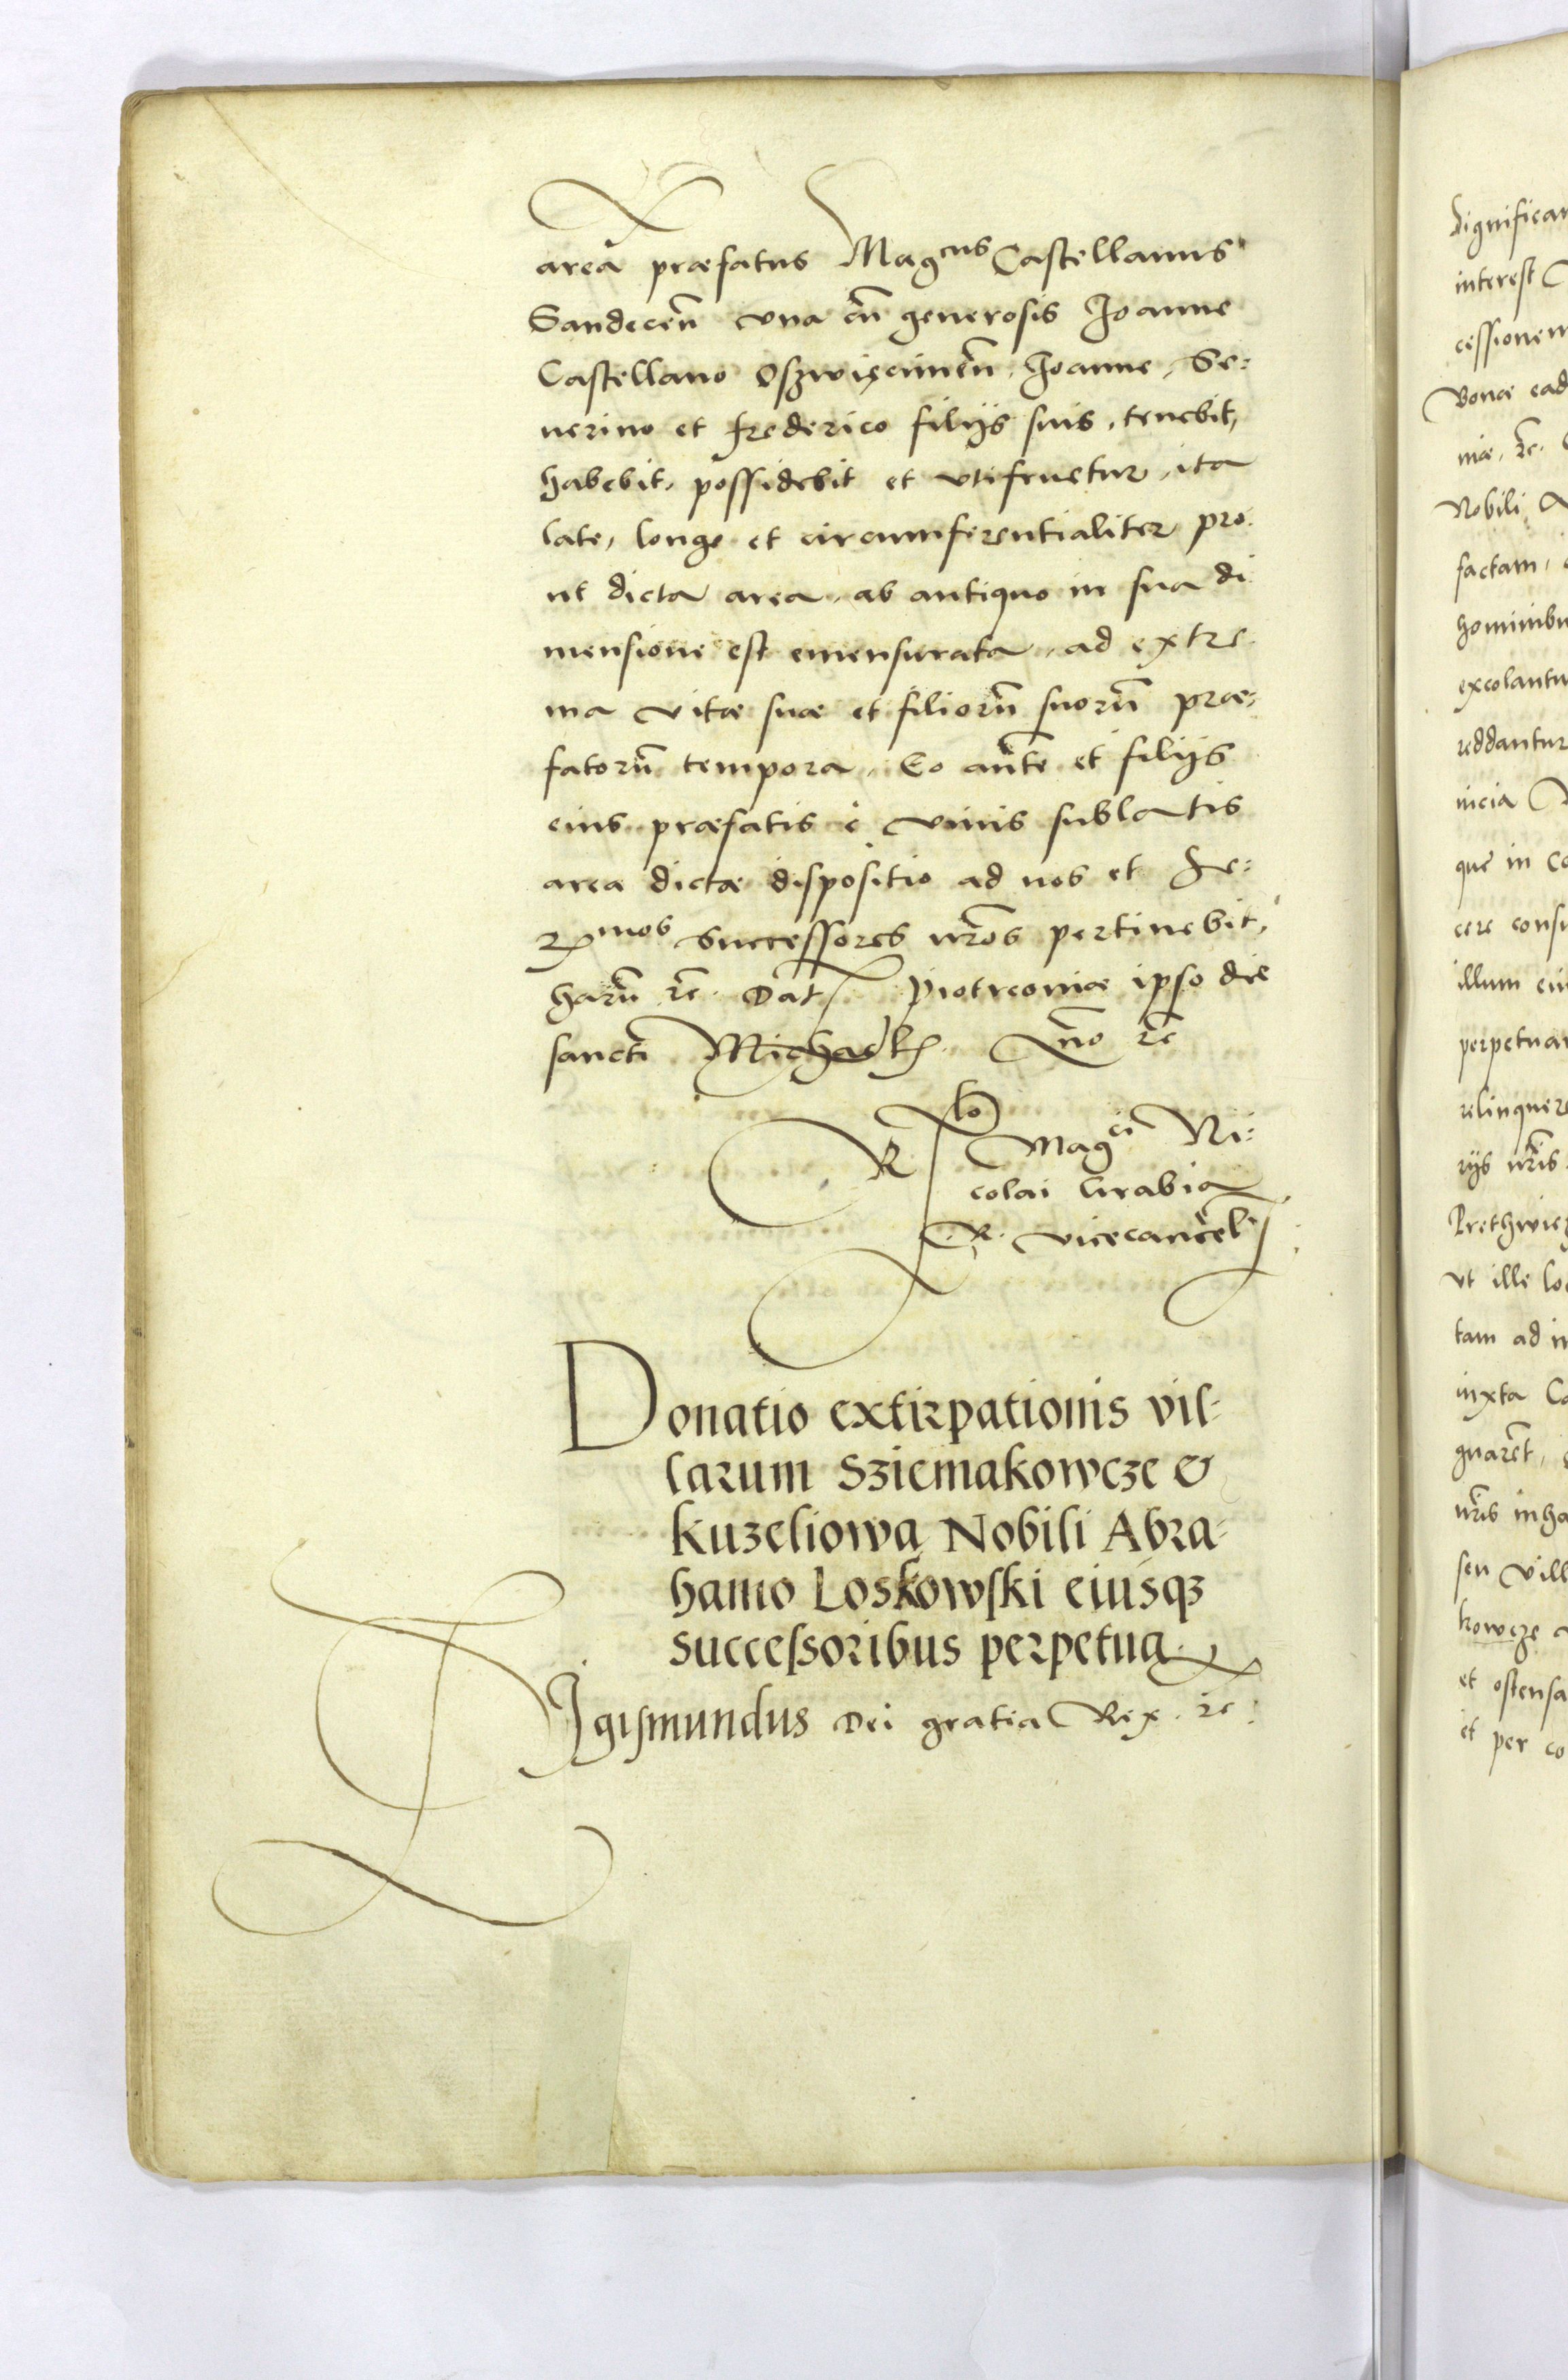 area præfatus Mag^cus Castellanus
Sandecen̄ vna cū generosis Ioanne
Castellano Oszwięcimen̄, Ioanne, Se:
uerino et Frederico filijs suis, tenebit,
habebit, possidebit et vtifruetur, ita
late, longe et circumferentialiter pro
ut dicta area, ab antiquo in sua di
mensione est emensurata, ad extre
ma vitæ suæ et filiorū suorū præ:
fatorū tempora. Eo aūte et filijs
eius præfatis è viuis sublatis
area dictæ dispositio ad nos et Se:
r^mos Successores nr̄os pertinebit,
harū rc̄. Dat Piotrcouiæ ipso die
sancti Michael. Āno rc̄
R^lo Mag^ci Ni:
colai Grabia
R. vicecancel
Donatio extirpationis vil:
larum Sziemakowcze &
Kuzeliowa Nobili Abra:
hamo Loskowski eiusq3
successoribus perpetua.
Sigismundus Dei gratia Rex. rc:
Significam
interest
cessionem
Bonæ ead
niæ, rc̄.
Nobili A
factam,
hominibu
excolantu
reddantur
nicia
que in
cere consu
illum
perpetuam
relinquere
rijs nr̄is
Prethwicz
vt ille lo
tam ad in
iuxta Co
guarēt,
nr̄is inha
seu vill
kowcze
et ostensa
et per co